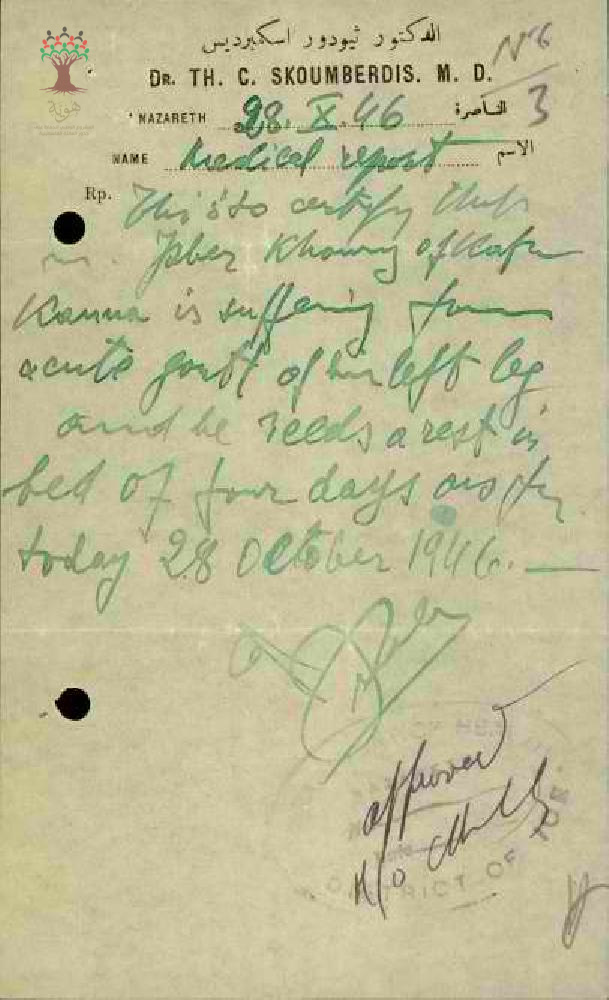 هوية
الدكتور ثيودور اسكمبرديس
DR. TH. C. SKOUMBERDIS. M. D.
NO 6
3
NAZARETH 28. X. 46 الناصرة
NAME Medical report الاسم
Rp. This is to certify that
Jaber Khoury of Kafr
Kanna is suffering from
acute gout of his left leg
and he needs a rest in
bed of four days as from
today 28 October 1946. —
approved
M/O
DISTRICT OF